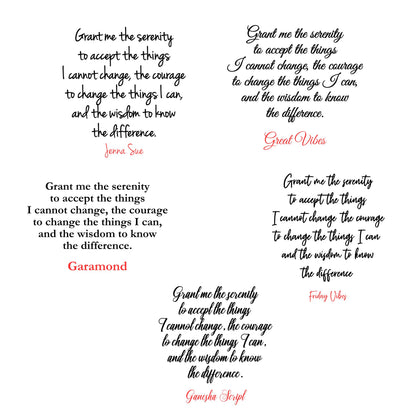 Grant me the serenity
to accept the things
I cannot change, the courage
to change the things I can,
and the wisdom to know
the difference.
Jenna Sue
Grant me the serenity
to accept the things
I cannot change, the courage
to change the things I can,
and the wisdom to know
the difference.
Great Vibes
Grant me the serenity
to accept the things
I cannot change, the courage
to change the things I can,
and the wisdom to know
the difference.
Garamond
Grant me the serenity
to accept the things
I cannot change the courage
to change the things I can
and the wisdom to know
the difference
Friday Vibes
Grant me the serenity
to accept the things
I cannot change, the courage
to change the things I can,
and the wisdom to know
the difference.
Ganesha Script